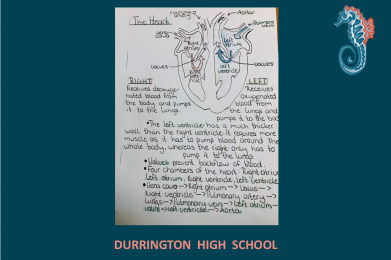 The Heart
Pulmonary artery
Aorta
Pulmonary vein
vena cava
Right atrium
Left atrium
valves
valves
Right ventricle
Left ventricle
RIGHT
Receives deoxygenated blood from the body and pumps it to the lungs
LEFT
Receives oxygenated blood from the lungs and pumps it to the body
•The left ventricle has a much thicker
wall than the right ventricle. It requires more
muscle as it has to pump blood around the
whole body, whereas the right only has to
pump it to the lungs
•Valves prevent backflow of blood.
•Four chambers of the heart: Right atrium,
Left atrium, Right ventricle, Left ventricle
•Vena cava → Right atrium → Valve →
Right ventricle → Pulmonary artery →
Lungs → Pulmonary vein → Left atrium →
valve → Left ventricle → Aorta
DURRINGTON HIGH SCHOOL